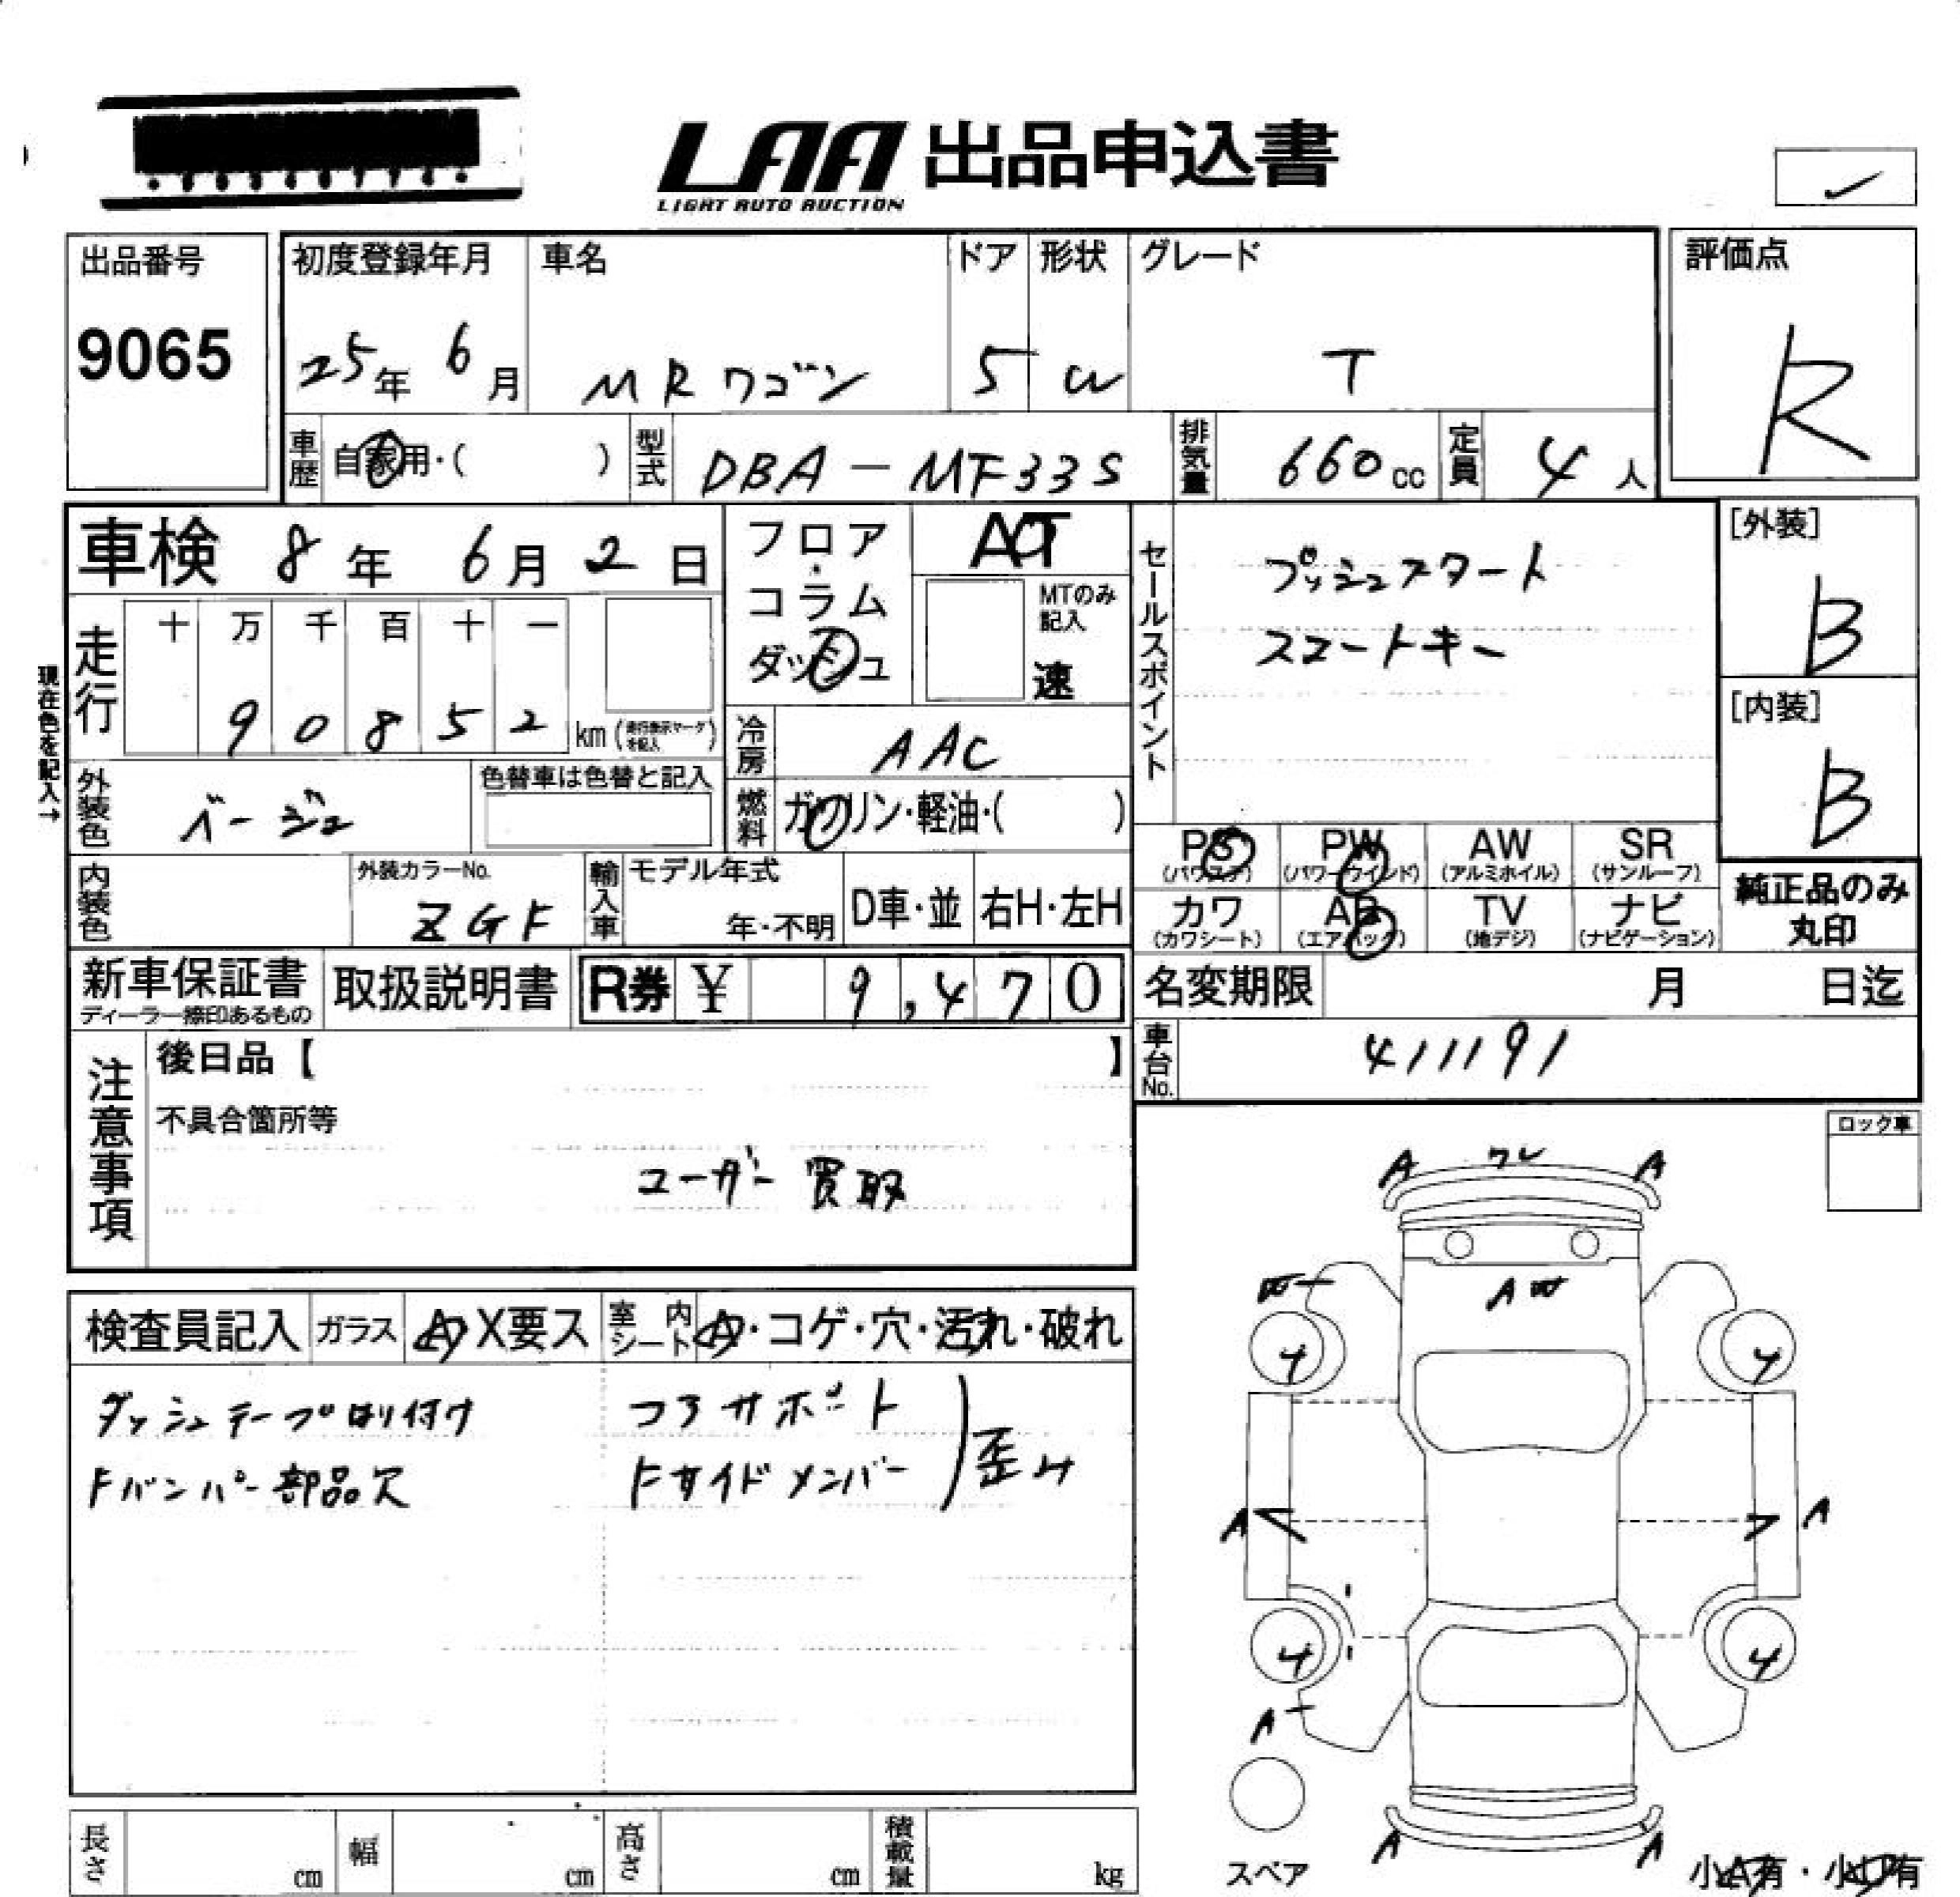 LAA 出品申込書
LIGHT AUTO AUCTION
出品番号
9065
初度登録年月
25年 6月
車名
MRワゴン
ドア
5
形状
W
グレード
T
評価点
R
車歴
自家用・( )
型式
DBA-MF33S
排気量
660cc
定員
4人
車検 8年 6月 2日
フロア・コラム
ダッシュ
AT
MTのみ記入
速
セールスポイント
プッシュスタート
スマートキー
[外装]
B
[内装]
B
現在色を記入→
走行
十 万 千 百 十 一
9 0 8 5 2 km
(走行表示マークを記入)
冷房
AAC
外装色
ベージュ
色替車は色替と記入
燃料
ガソリン・軽油・( )
PS
(パワステ)
PW
(パワーウインド)
AW
(アルミホイル)
SR
(サンルーフ)
内装色
外装カラーNo.
ZGF
輸入車
モデル年式
年・不明
D車・並
右H・左H
カワ
(カワシート)
AB
(エアバック)
TV
(地デジ)
ナビ
(ナビゲーション)
純正品のみ
丸印
新車保証書
ディーラー捺印あるもの
取扱説明書
R券 ¥ 9,470
名変期限 月 日迄
車台No.
411191
注意事項
後日品【 】
不具合箇所等
ユーザー買取
ロック車
検査員記入
ガラス
A X要ス
室内
シート
A・コゲ・穴・汚れ・破れ
ダッシュテープはり付け
Fバンパー部品欠
コアサポート
Fサイドメンバー
歪み
A ワレ A
W
A W
4 4
A A
4 4
A
A A
スペア
小A有・小U有
長さ cm
幅 cm
高さ cm
積載量 kg